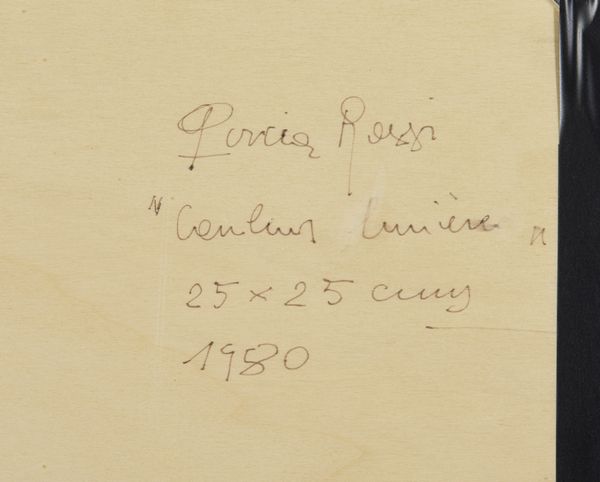 Garcia Rossi
"Couleur lumière"
25 x 25 cms
1980